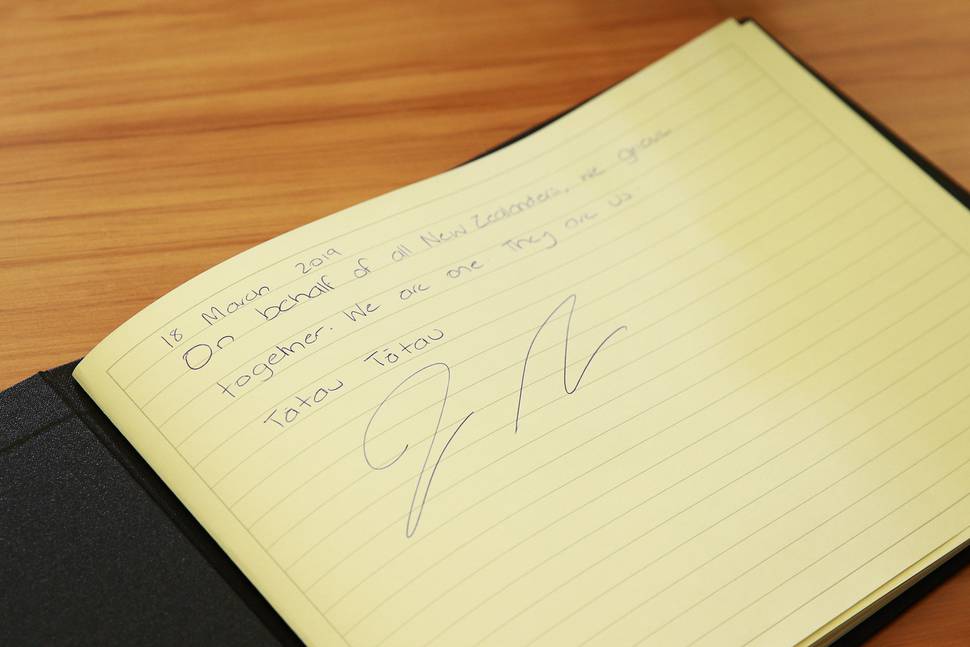 18 March 2019
On behalf of all New Zealanders, we grieve
together. We are one They are us
Tatau Tātau